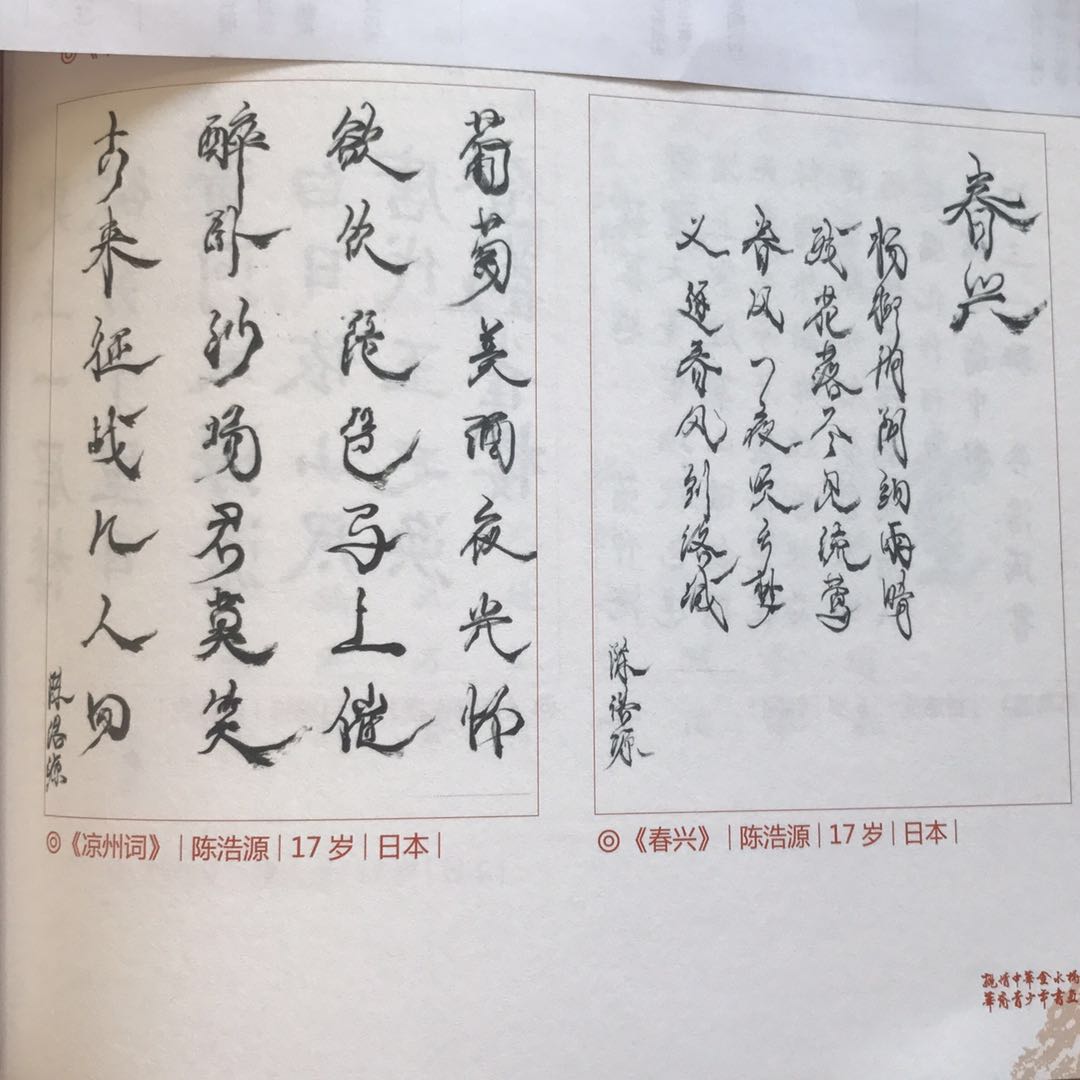 葡萄美酒夜光杯
欲饮琵琶马上催
醉卧沙场君莫笑
古来征战几人回
陈浩源
◎《凉州词》|陈浩源|17岁|日本|
春兴
杨柳阴阴细雨晴
残花落尽见流莺
春风一夜吹乡梦
又逐春风到洛城
陈浩源
◎《春兴》|陈浩源|17岁|日本|
親情中華金水橋
華裔青少年書畫